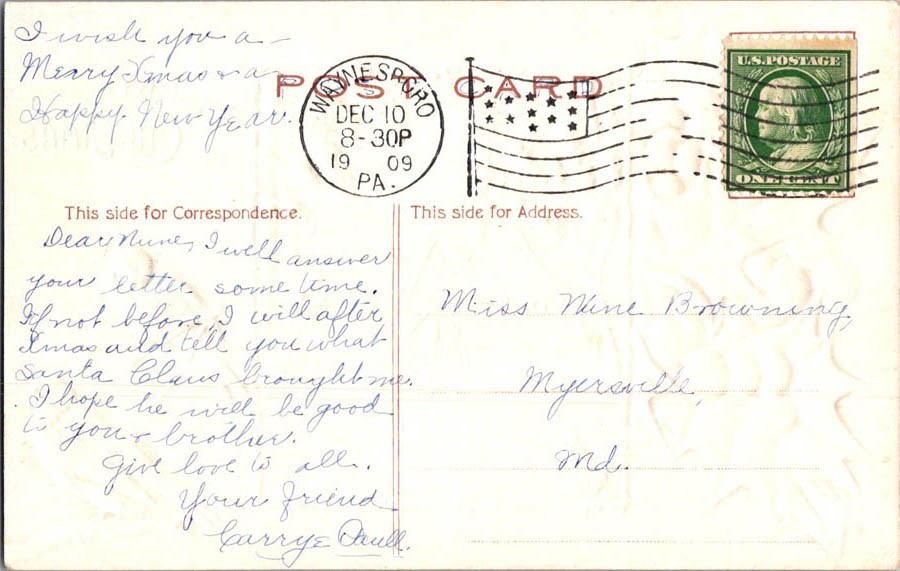 I wish you a -
Merry Xmas & a
Happy New Year.
POST CARD
WAYNESBORO
DEC 10
8-30P
1909
PA.
U.S. POSTAGE
ONE CENT
This side for Correspondence.
Dear Nune, I will answer
your letter some time.
If not before, I will after
Xmas and tell you what
Santa Claus brought me.
I hope he will be good
to you & brother.
Give love to all.
Your friend
Carrye
This side for Address.
Miss Nune Browning,
Myersville,
Md.